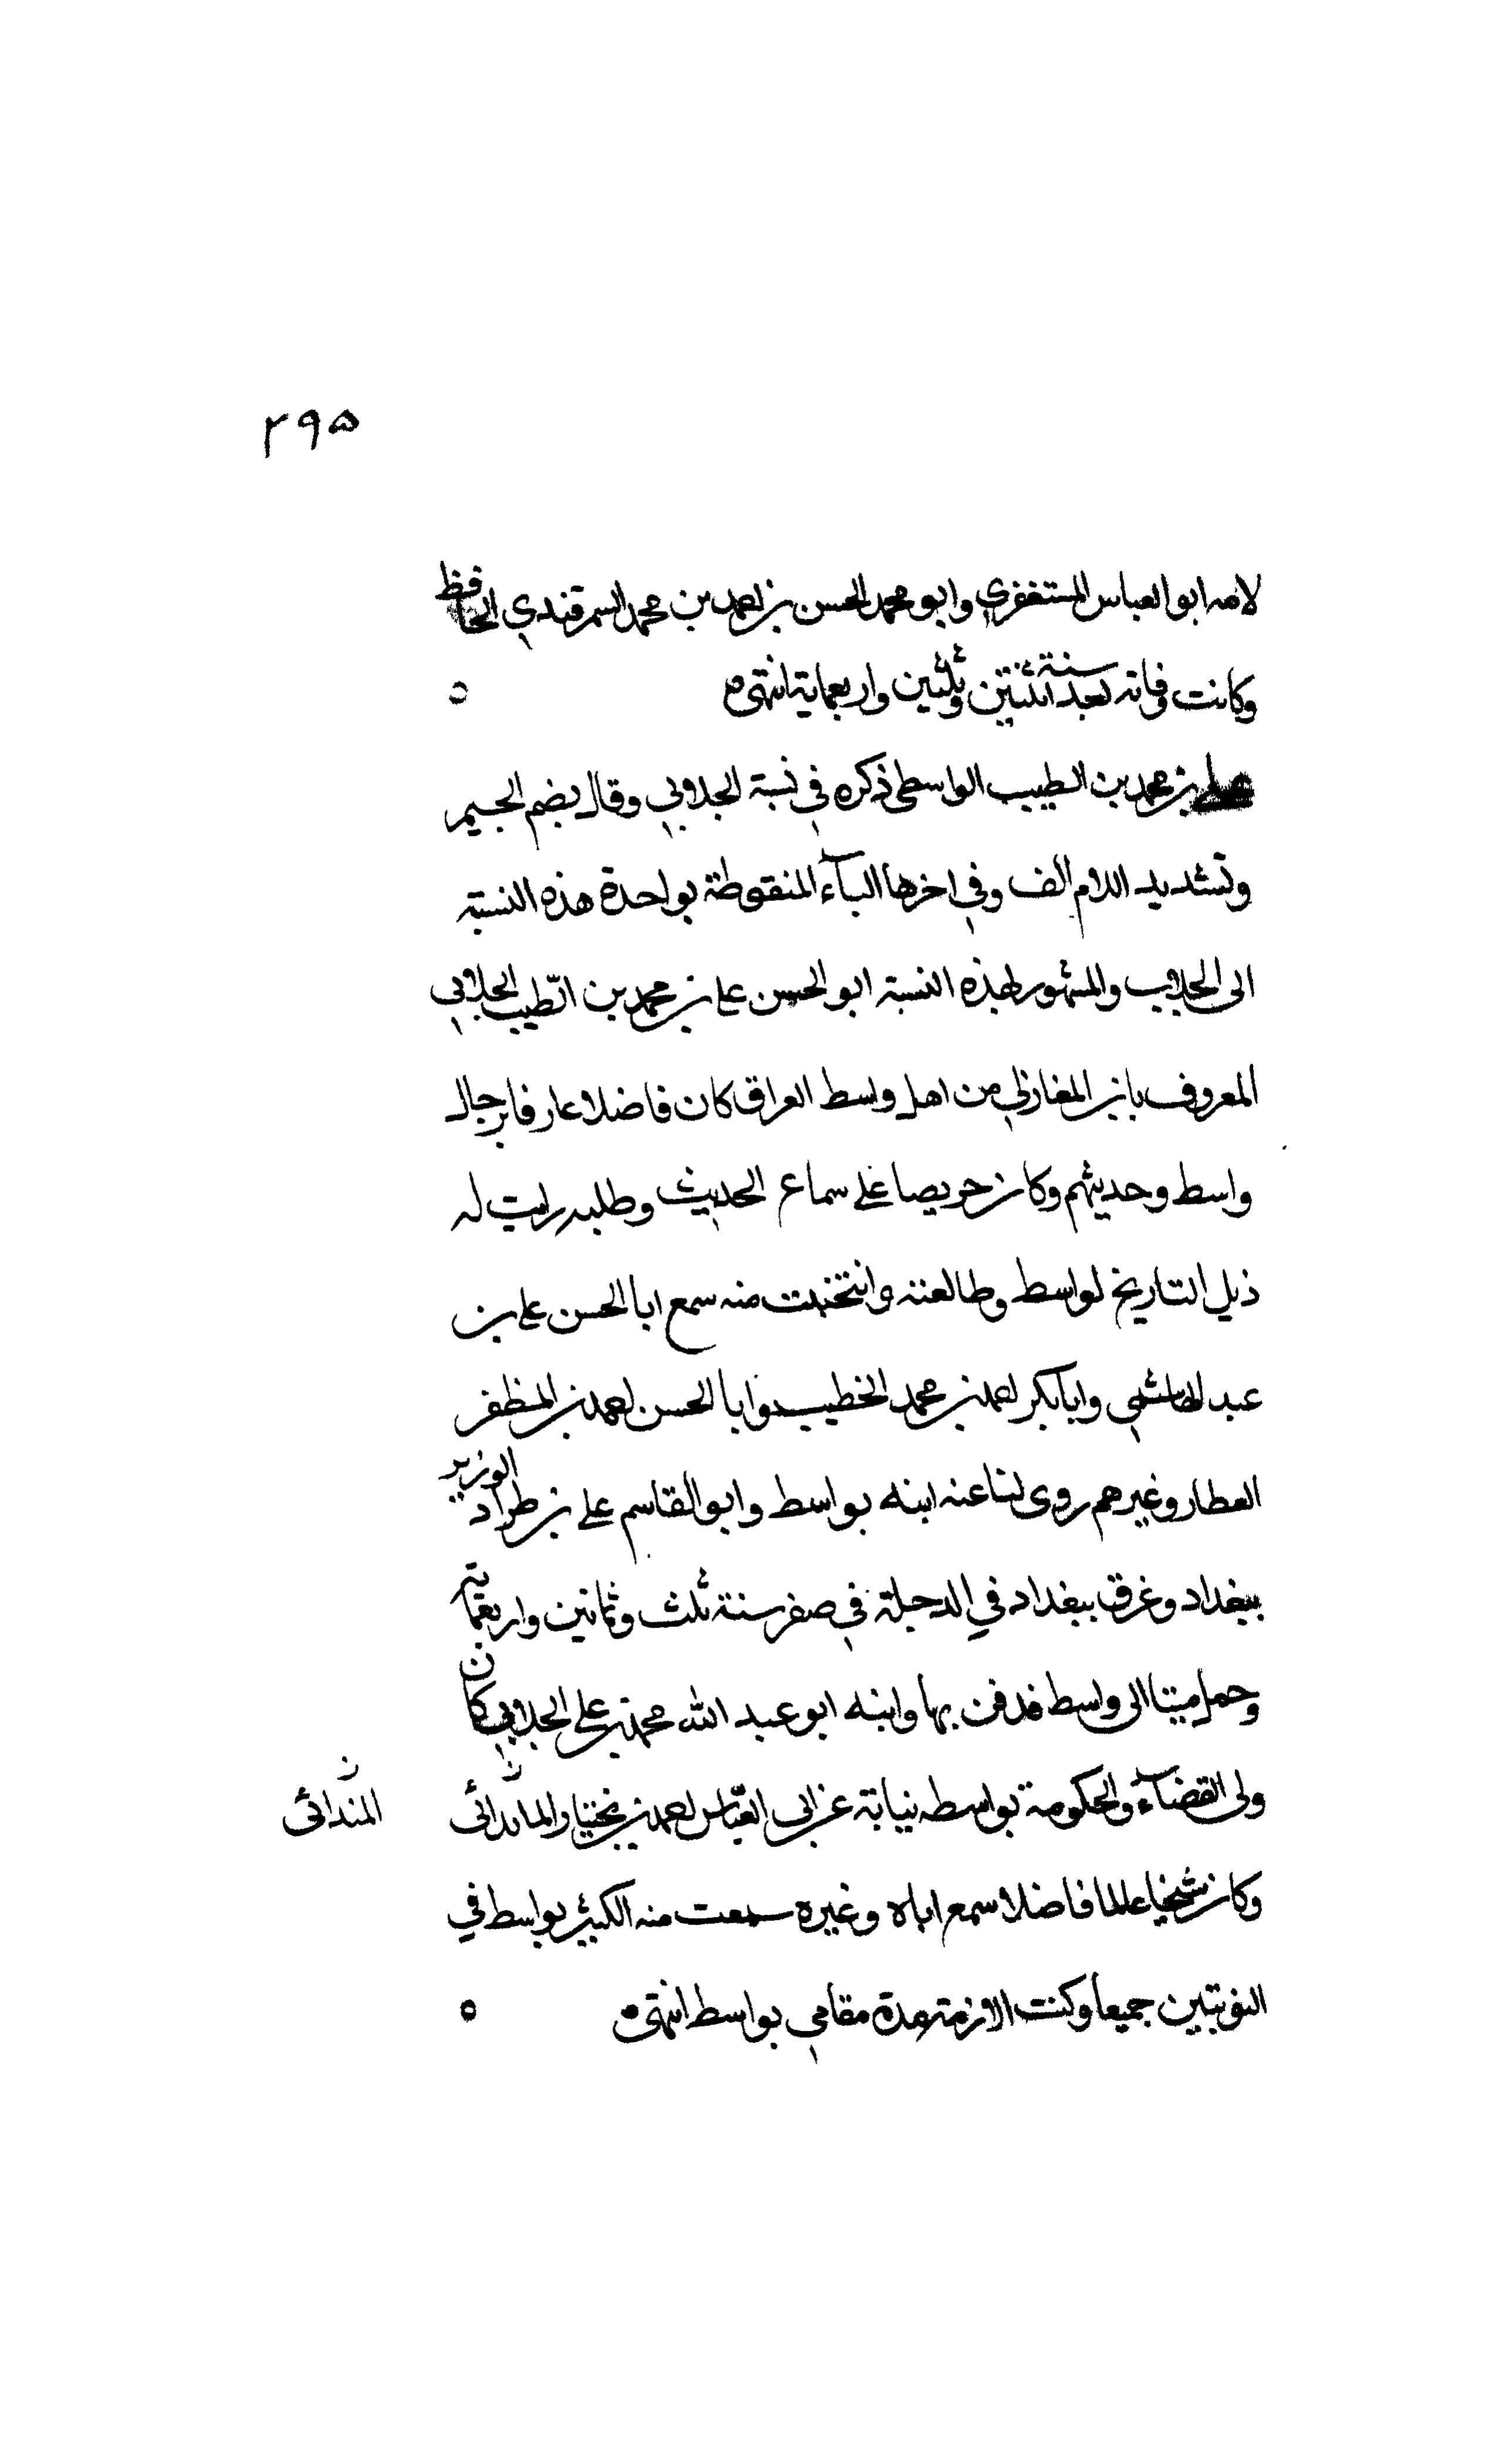 ٢٩٥
لامه ابو العباس المستغفري وابو محمد الحسن بن احمد بن محمد السمرقندي الحافظ
وكانت وفاته بعد سنة اثنتين وثلثين واربعماية انتهى ٥
علي بن محمد بن الطيب الواسطي ذكره في نسبة الجلابي وقال بضم الجيم
وتشديد اللام الف وفي اخرها البآء المنقوطة بواحدة هذه النسبة
الى الجلاب والمشهور بهذه النسبة ابو الحسن علي بن محمد بن الطيب الجلابي
المعروف بابن المغازلي من اهل واسط العراق كان فاضلا عارفا برجال
واسط وحديثهم وكان حريصا على سماع الحديث وطلبه رايت له
ذيل التاريخ لواسط وطالعته وانتخبت منه سمع ابا الحسن علي بن
عبد الهاشمي وابا بكر احمد بن محمد الخطيب وابا الحسن احمد بن المظفر
العطار وغيرهم روى لنا عنه ابنه بواسط وابو القاسم علي بن طراد الوزير
ببغداد وغرق ببغداد في الدجلة في صفر سنة ثلث وثمانين واربعماية
وحمل ميتا الى واسط فدفن بها وابنه ابو عبد الله محمد بن علي الجلابي كان
ولي القضآء والحكومة بواسط نيابة عن ابي العباس احمد بن بختيار الماندائى
المندائى
وكان شيخا عالما فاضلا سمع اباه وغيره سمعت منه الكثير بواسط في
النوبتين جميعا وكنت الازمه مدة مقامي بواسط انتهى ٥